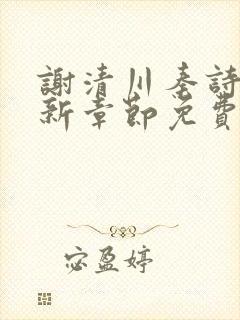 謝清川秦詩
新章節免費
宓盈婷